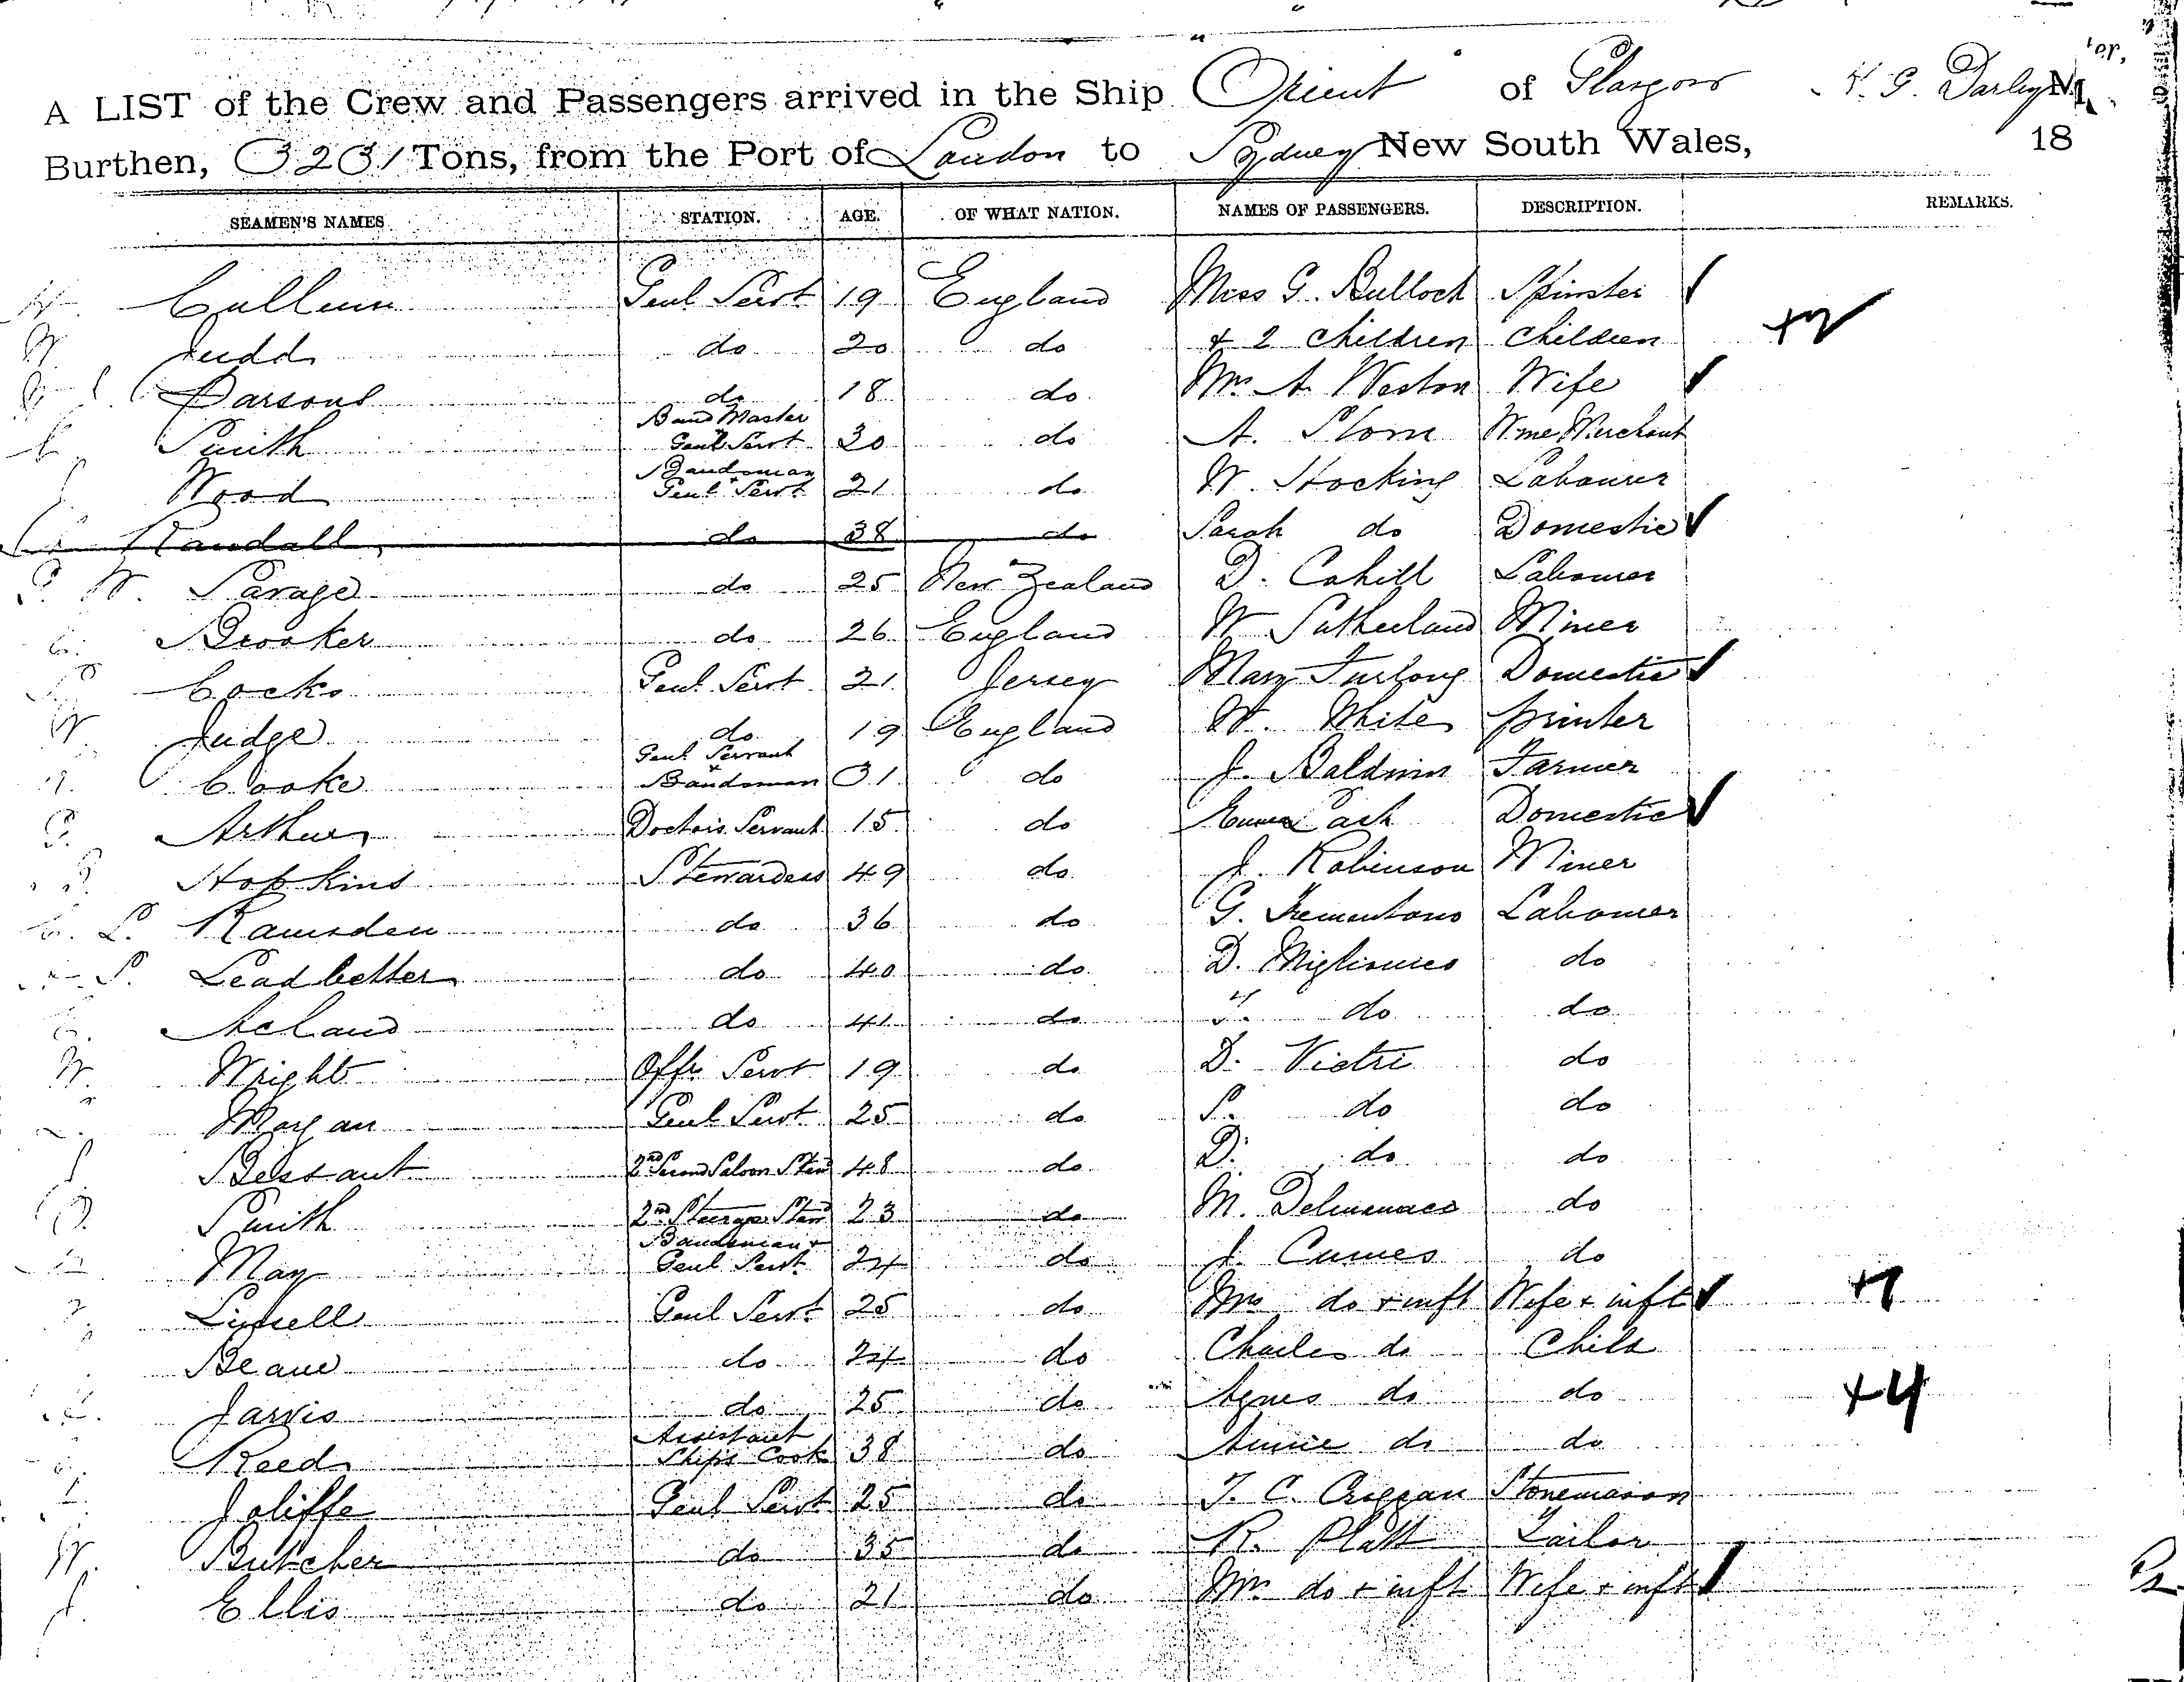 A LIST of the Crew and Passengers arrived in the Ship Orient of Glasgow
Burthen, 3231 Tons, from the Port of London to Sydney New South Wales, 18
SEAMEN'S NAMES STATION. AGE. OF WHAT NATION. NAMES OF PASSENGERS. DESCRIPTION. REMARKS.
Cullum Genl Servt 19 England Miss G. Bulloch Spinster
W Judd do 20 do + 2 children children
Parsons do 18 do Mrs A. Weston Wife
Smith Band Master + Genl Servt 30 do A. Wine Merchant
J Wood Bandsman + Genl Servt 21 do W. Hocking Labourer
Randall do 38 do Sarah do Domestic
W. Savage do 25 New Zealand D. Cahill Labourer
Brooker do 26 England W Sutherland Miner
Cocks Genl Servt 21 Jersey Mary Furlong Domestic
W Judge do 19 England W. White printer
Cooke Genl Servant + Bandsman 31 do J. Baldwin Farmer
Arthur Doctors Servant 15 do Emma Cash Domestic
Hopkins Stewardess 49 do J. Robinson Miner
L. Ramsden do 36 do G. Labourer
S. Leadbetter do 40 do D. do
Acland do 41 do do do
W. Wright Offrs Servt 19 do D. Vietri do
Morgan Genl Servt 25 do S. do do
J Bessant 2nd Second Saloon Stewd 48 do D. do do
Smith 2nd Steerage Stewd 23 do M. do
May Bandsman + Genl Servt 24 do J. do
Genl Servt 25 do Mrs do + inft Wife + inft
Beane do 24 do Charles do Child
Jarvis do 25 do Agnes do do +4
Reed Assistant Ships Cook 38 do Annie do do
Joliffe Genl Servt 25 do T. C. Stonemason
W. Butcher do 35 do R. Platt Tailor
J. Ellis do 21 do Mrs do + inft Wife + inft